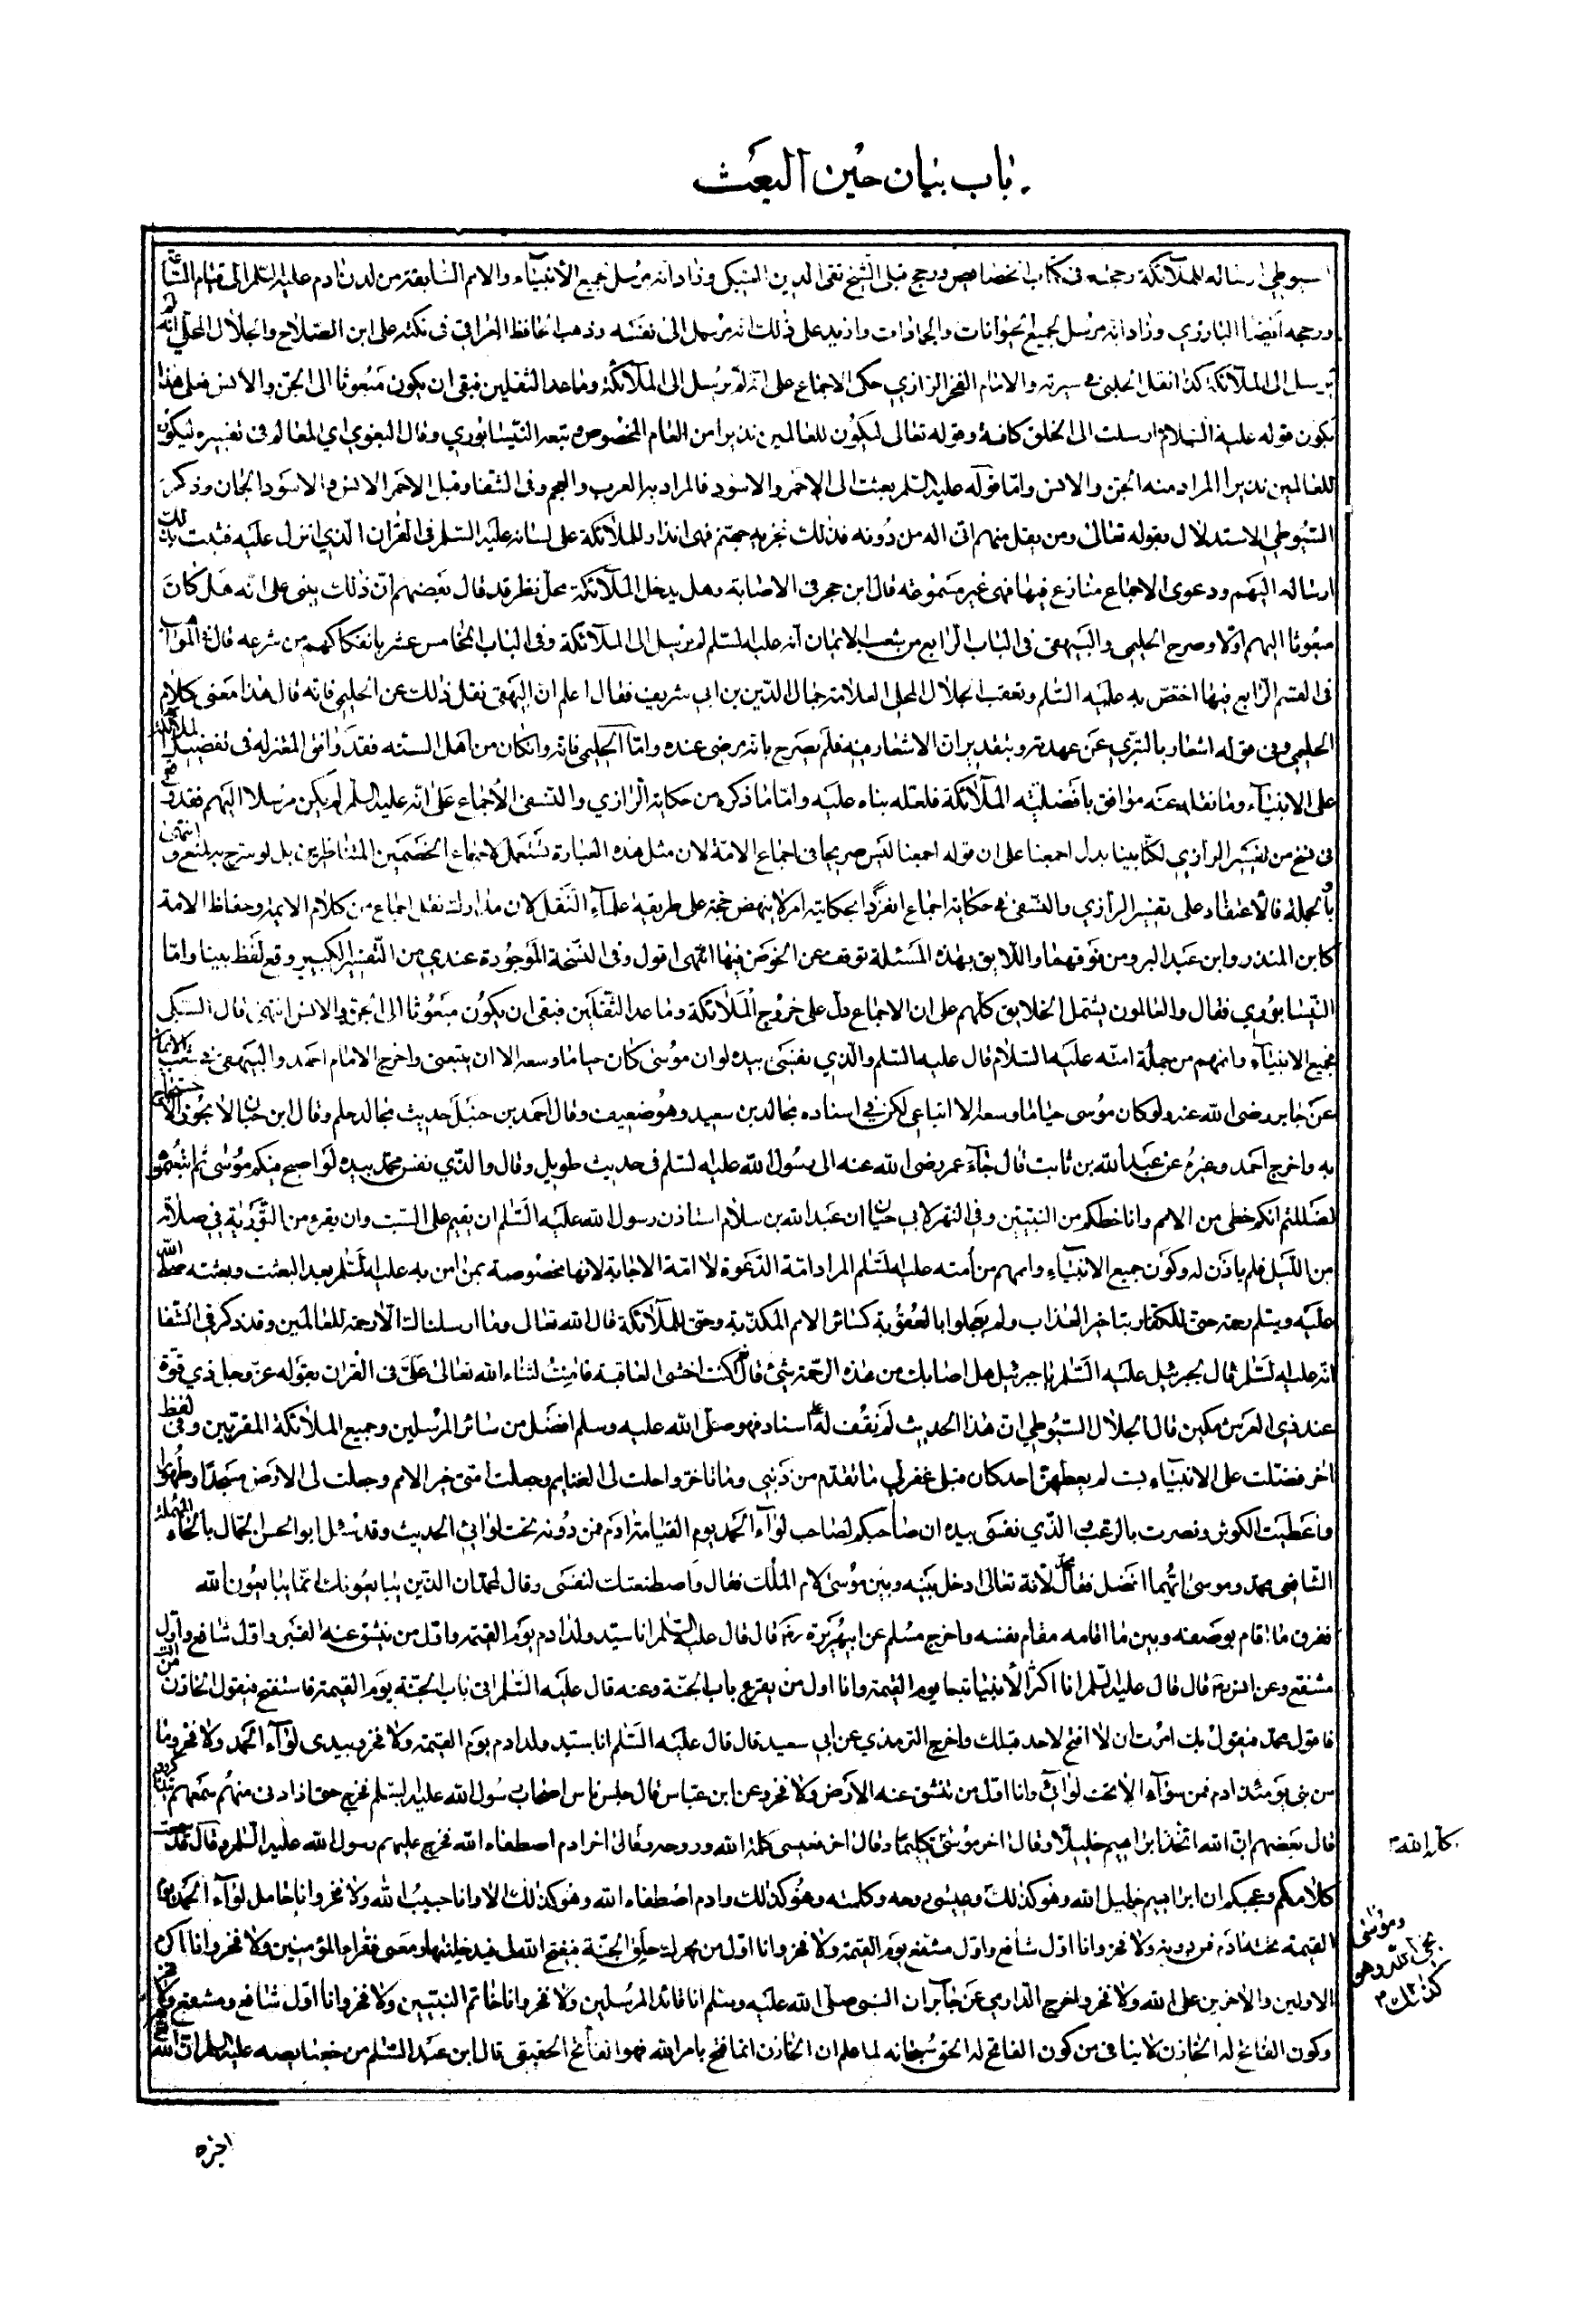 باب بيان حين البعث
السيوطي ارساله للملآئكة رجحه فى كتاب الخصايص ورجح قبله الشيخ تقى الدين السبكى وزاد انه مرسل لجميع الأنبيآء والامم السابقة من لدن ادم عليه السلم الى قيام الساعة
ورجحه ايضا البارزي وزاد انه مرسل لجميع الحيوانات والجمادات وازيد على ذلك انه مرسل الى نفسه وذهب الحافظ العراقى فى نكته على ابن الصلاح والجلال المحلي انه لم
يرسل الى الملآئكة كذا نقل الحلبى فى سيرته والامام الفخر الرازي حكى الاجماع على انه لم يرسل الى الملآئكة وماعدا الثقلين فبقى ان يكون مبعوثا الى الجن والانس فعلى هذا
يكون قوله عليه السلام ارسلت الى الخلق كافة وقوله تعالى ليكون للعالمين نذيرا من العام المخصوص وتبعه النيسابوري وقال البغوي اي المعالم فى تفسيره ليكون
للعالمين نذيرا المراد منه الجن والانس واما قوله عليه السلم بعثت الى الاحمر والاسود فالمراد به العرب والعجم وفى الشفا وقيل الاحمر الانس والاسود الجان وذكر
السيوطي الاستدلال بقوله تعالى ومن يقل منهم انى اله من دونه فذلك نجزيه جهنم فهى انذار للملآئكة على لسانه عليه السلم فى القران الذي انزل عليه فثبت بذلك
ارساله اليهم ودعوى الاجماع منازع فيها فهى غير مسموعة قال ابن حجر فى الاصابة وهل يدخل الملآئكة محل نظر قد قال بعضهم ان ذلك يبنى على انه هل كان
مبعوثا اليهم اولا وصرح الحليمى والبيهقى فى الباب الرابع من شعب الايمان انه عليه السلم لم يرسل الى الملآئكة وفى الباب الخامس عشر بانفكاكهم من شرعه قال فى المواهب
فى القسم الرابع فيما اختص به عليه السلم وتعقب الجلال المحلى العلامة جمال الدين بن ابى شريف فقال اعلم ان البيهقى نقل ذلك عن الحليمى فانه قال هذا معنى كلام
الحليمي وفى قوله اشعار بالتبري عن عهدته وبتقدير ان الاشعار فيه فلم يصرح بانه مرضى عنده واما الحليمى فانه وان كان من اهل السنة فقد وافق المعتزله فى تفضيل الملآئكة
على الانبيآء وما نقله عنه موافق بافضليته الملآئكة فلعله بناه عليه واما ما ذكره من حكاية الرازي والنسفى الاجماع على انه عليه السلم لم يكن مرسلا اليهم فقد وقع
فى نسخ من تفسير الرازي لكنا بينا بدل اجمعنا على ان قوله اجمعنا ليس صريحا فى اجماع الامة لان مثل هذه العبارة تستعمل لاجماع الخصمين المتناظرين بل لو صرح به لمنع انتهى و
بالجملة فالاعتماد على تفسير الرازي والنسفى فى حكاية اجماع انفردا بحكايته امر لا ينهض حجة على طريقة علمآء النقل لان مدارك نقل اجماع من كلام الايمة وحفاظ الامة
كابن المنذر وابن عبد البر ومن فوقهما واللايق بهذه المسئلة توقف عن الخوض فيها انتهى اقول وفى النسخة الموجودة عندي من التفسير الكبير وقع لفظ بينا واما
النيسابوري فقال والعالمون يشتمل الخلايق كلهم على ان الاجماع دل على خروج الملآئكة وماعدا الثقلين فبقى ان يكون مبعوثا الى الجن والانس انتهى قال السبكى
فجميع الانبيآء وانهم من جملة امته عليه السلام قال عليه السلم والذي نفسى بيده لو ان موسى كان حيا ما وسعه الا ان يتبعنى واخرج الامام احمد والبيهقى فى شعب الايمان
عن جابر رضى الله عنه ولو كان موسى حيا ما وسعه الا اتباعى لكن فى اسناده مجالد بن سعيد وهو ضعيف وقال احمد بن حنبل حديث مجالد حلم وقال ابن حبان لا يجوز الاحتجاج
به واخرج احمد وغيره عن عبد الله بن ثابت قال جآء عمر رضى الله عنه الى رسول الله عليه السلم فى حديث طويل وقال والذي نفس محمد بيده لو اصبح فيكم موسى ثم اتبعتموه
لضللتم انكم حظى من الامم وانا حظكم من النبيين وفى النهر لابى حيان ان عبد الله بن سلام استاذن رسول الله عليه السلم ان يقيم على السبت وان يقرء من التورية فى صلاته
من الليل فلم ياذن له وكون جميع الانبيآء واممهم من امته عليه السلم المراد امة الدعوة لا امة الاجابة لانها مخصوصة بمن امن به عليه السلم بعد البعثت وبعثته صلى الله
عليه وسلم رحمة حتى للكفار بتاخير العذاب ولم يعجلوا بالعقوبة كسائر الامم المكذبة وحتى للملآئكة قال الله تعالى وما ارسلناك الا رحمة للعالمين وقد ذكر فى الشفا
انه عليه السلم قال لجبرئيل عليه السلم يا جبرئيل هل اصابك من هذه الرحمة شئ قال نعم كنت اخشى العاقبة فامنت لثناء الله تعالى على فى القران بقوله عز وجل ذي قوة
عند ذي العرش مكين قال الجلال السيوطي ان هذا الحديث لم نقف له على اسناد فهو صلى الله عليه وسلم افضل من سائر المرسلين وجميع الملآئكة المقربين وفى لفظ
اخر فضلت على الانبيآء بست لم يعطهن احد كان قبلى غفر لي ما تقدم من ذنبي وما تاخر واحلت لى الغنايم وجعلت امتى خير الامم وجعلت لى الارض مسجدا وطهورا
واعطيت الكوثر ونصرت بالرعب والذي نفسى بيده ان صاحبكم لصاحب لوآء الحمد يوم القيامة ادم فمن دونه تحت لوائى الحديث وقد سئل ابو الحسن الحمال بالحاء المهملة
الشافعى محمد وموسى ايهما افضل فقال محمد لانه تعالى ادخل بينه وبين موسى لام الملك فقال واصطنعتك لنفسى وقال لمحمد ان الذين يبايعونك انما يبايعون الله
ففرق ما اقام بوصفه وبين ما اقامه مقام نفسه واخرج مسلم عن ابيهريرة رضه قال قال عليه السلم انا سيد ولد ادم يوم القيمة واول من ينشق عنه القبر واول شافع واول
مشفع وعن انس رضه قال قال عليه السلم انا اكثر الأنبيا تبعا يوم القيمة وانا اول من يقرع باب الجنة وعنه قال عليه السلم اتى باب الجنة يوم القيمة فاستفتح فيقول الخازن من انت
فاقول محمد فيقول بك امرت ان لا افتح لاحد قبلك واخرج الترمذي عن ابى سعيد قال قال عليه السلم انا سيد ولد ادم يوم القيمة ولا فخر وبيدى لوآء الحمد ولا فخر وما
من نبى يومئذ ادم فمن سوآه الا تحت لوائى وانا اول من تنشق عنه الارض ولا فخر وعن ابن عباس قال جلس ناس اصحاب رسول الله عليه السلم فخرج حتى اذا دنى منهم سمعهم يتذاكرون
قال بعضهم ان الله اتخذ ابراهيم خليلا وقال اخر موسى تكليما وقال اخر فعيسى كلمة الله وروحه وقال اخر ادم اصطفاه الله فخرج عليهم رسول الله عليه السلم وقال قد سمعت
كلامكم وعجبكم ان ابراهيم خليل الله وهو كذلك وعيسى روحه وكلمته وهو كذلك وادم اصطفاه الله وهو كذلك الا وانا حبيب الله ولا فخر وانا حامل لوآء الحمد يوم
القيمة تحته ادم فمن دونه ولا فخر وانا اول شافع واول مشفع يوم القيمة ولا فخر وانا اول من يحرك حلق الجنة فيفتح الله لى فيدخلنيها ومعى فقراء المؤمنين ولا فخر وانا اكرم
الاولين والآخرين على الله ولا فخر واخرج الدارمي عن جابر ان النبى صلى الله عليه وسلم انا قائد المرسلين ولا فخر وانا خاتم النبيين ولا فخر وانا اول شافع ومشفع ولا فخر
وكون الفاتح له الخازن لا ينافى من كون الفاتح له الحق سبحانه لما علم ان الخازن انما فتح بامر الله فهو الفاتح الحقيقى قال ابن عبد السلم من خصايصه عليه السلم ان الله
كلم الله
وموسى
نجى الله وهو
كذلك
اخبره